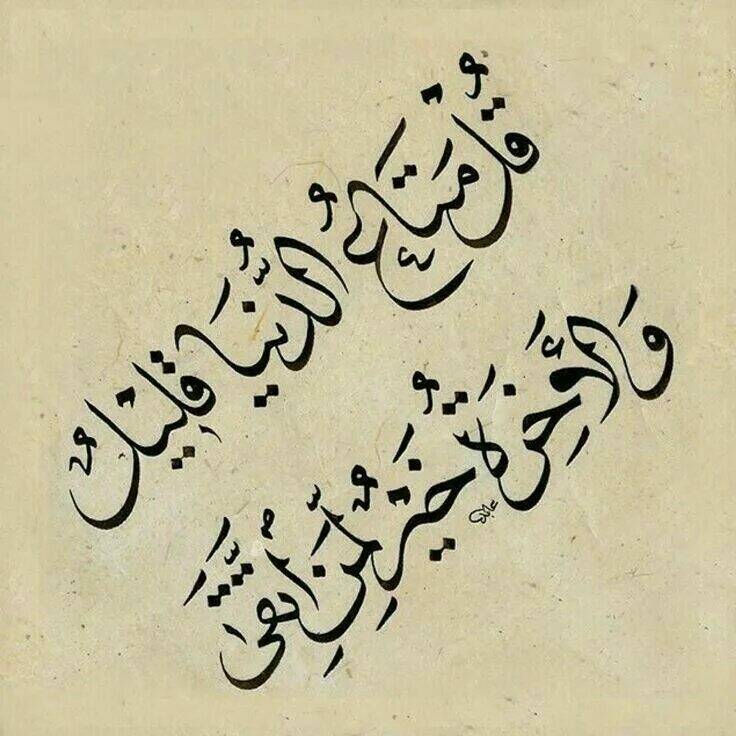 قُلْ مَتَاعُ الدُّنْيَا قَلِيلٌ
وَالْأَخِرَةُ خَيْرٌ لِّمَنِ اتَّقَىٰ